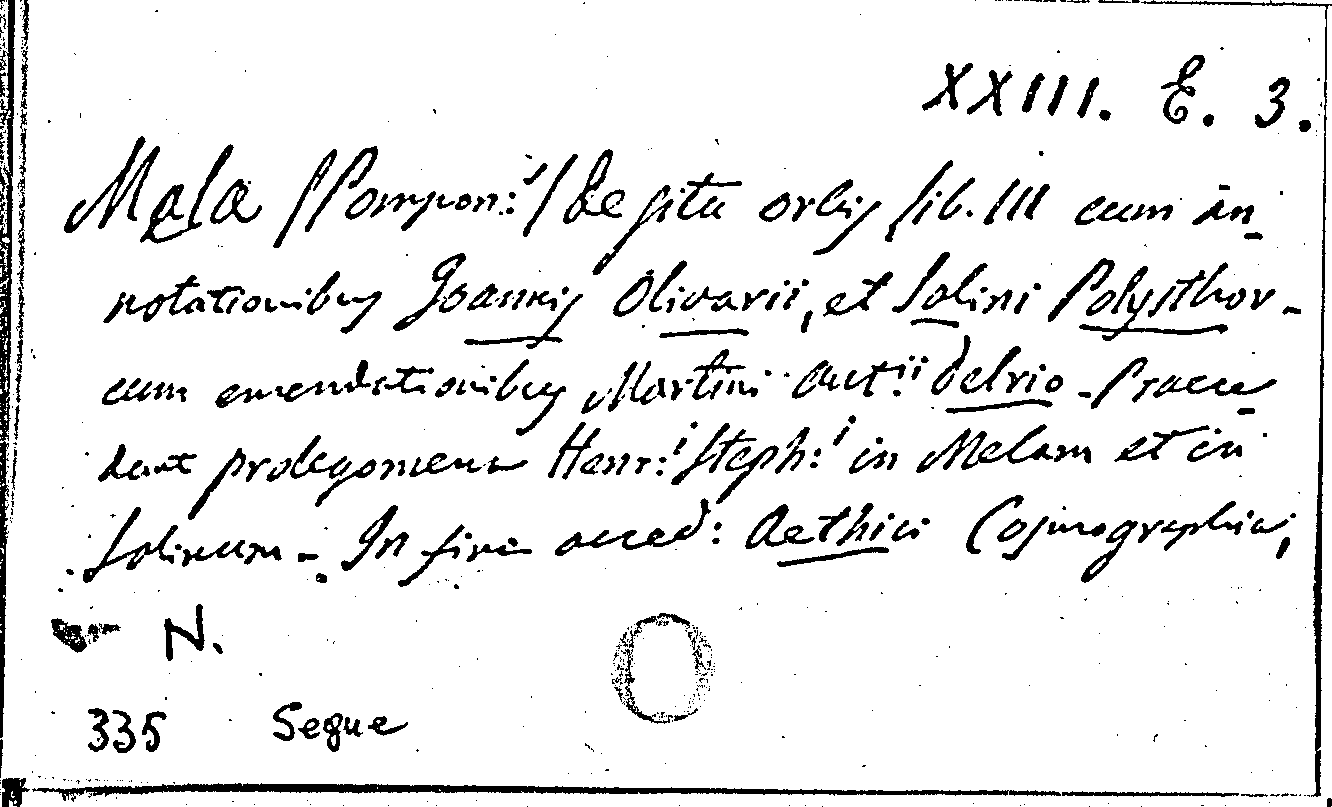 XXIII. E. 3.
Melae /Pompon:i/ de situ orbis lib. III cum an-
notationibus Joannis Olivarii, et Solini Polysthor-
cum emendationibus Martini Ant:ii Delrio - Praece-
dunt prolegomena Henr:i Steph:i in Melam et in
Solinum - In fine acced: Aethici Cosmographia,
N.
335 Segue